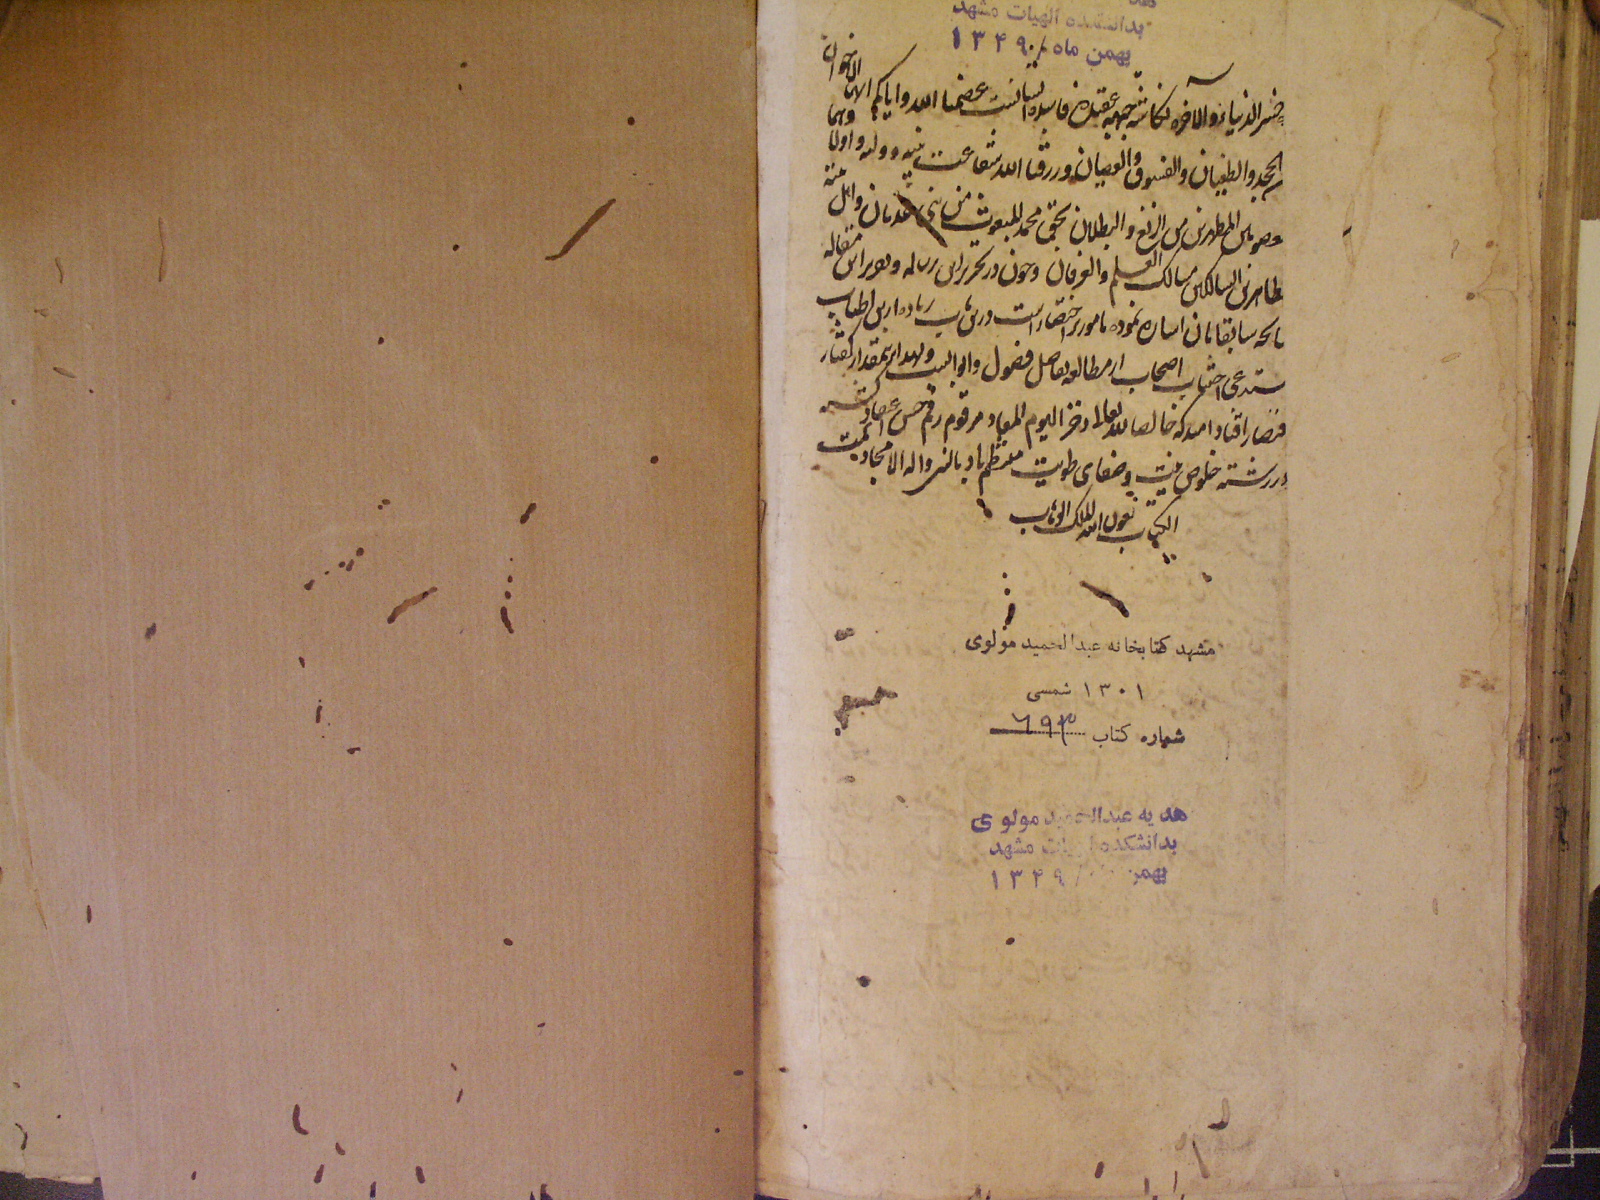 بدانشکده الهیات مشهد
بهمن ماه ۱۳۴۹
خسر الدنیا والآخره نکاشته جبهه عقیده فاسده ایشانست عصمنا الله وایاکم
الجحد والطغیان والفسوق والعصیان ورزقنا الله شفاعت نبیه وولیه واولا
المطهرین من الزیغ والبطلان بحق محمد المبعوث من بنی عدنان وآل
طاهرین السالکین مسالک العلم والعرفان وچون در تحریر این رساله و این مقاله
سابقا بآن اشاره نموده مامور باختصار است درین باب زیاده ازین اطناب
اصحاب از مطالعه فصول وابواب است ولهذا بهمین مقدار گفتار
اختصار افتاد امید که خالصا لله تعالی وذخرا الیوم المعاد مرقوم رقم حسن
در رشته خلوص نیت وصفای طویت منتظم باد بالنبی واله الامجاد تمت
الکتاب بعون الله الملک الوهاب
مشهد کتابخانه عبدالحمید مولوی
۱۳۰۱ شمسی
شماره کتاب ۶۹۳
هدیه عبدالحمید مولوی
بدانشکده الهیات مشهد
بهمن ۱۳۴۹